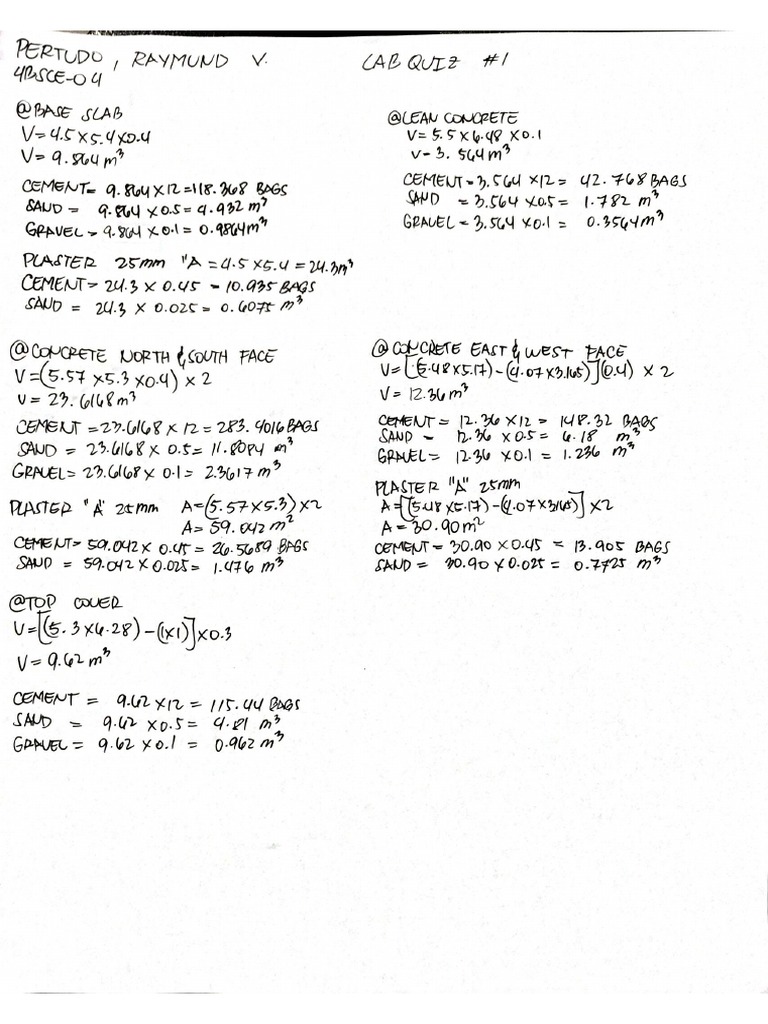 PERTUDO, RAYMUND V. LAB QUIZ #1
4BSCE-04
@BASE SLAB
V=4.5×5.4×0.4
V= 9.864 m³
CEMENT= 9.864×12=118.368 BAGS
SAND = 9.864 ×0.5= 4.932 m³
GRAVEL = 9.864 ×0.1 = 0.9864m³
PLASTER 25mm "A =4.5×5.4=24.3m³
CEMENT= 24.3 × 0.45 = 10.935 BAGS
SAND = 24.3 × 0.025= 0.6075 m³
@LEAN CONCRETE
V=5.5×6.48×0.1
V=3.564m³
CEMENT=3.564 ×12= 42.768BAGS
SAND =3.564 ×0.5= 1.782 m³
GRAVEL=3.564 ×0.1 = 0.3564m³
@CONCRETE NORTH & SOUTH FACE
V=(5.57 ×5.3 ×0.4) × 2
V= 23.6168m³
CEMENT =23.6168 × 12 = 283.4016BAGS
SAND = 23.6168 × 0.5= 11.8084 m³
GRAVEL= 23.6168× 0.1 = 2.3617 m³
PLASTER "A" 25mm A=(5.57×5.3)×2
A= 59.042m²
CEMENT= 59.042× 0.45= 26.5689 BAGS
SAND = 59.042 × 0.025= 1.476 m³
@CONCRETE EAST & WEST FACE
V=[(5.48×5.17)-(4.07×3.165)](0.4) × 2
V= 12.36m³
CEMENT= 12.36 ×12= 148.32 BAGS
SAND = 12.36 ×0.5= 6.18 m³
GRAVEL= 12.36 ×0.1 = 1.236 m³
PLASTER "A" 25mm
A=[(5.48×5.17)-(4.07×3.165)]×2
A=30.90m²
CEMENT= 30.90 ×0.45 = 13.905 BAGS
SAND = 30.90 ×0.025 = 0.7725 m³
@TOP COVER
V=[(5.3×6.28)-(1×1)]×0.3
V= 9.62m³
CEMENT = 9.62×12 = 115.44 BAGS
SAND = 9.62 ×0.5= 4.81 m³
GRAVEL = 9.62 ×0.1 = 0.962 m³